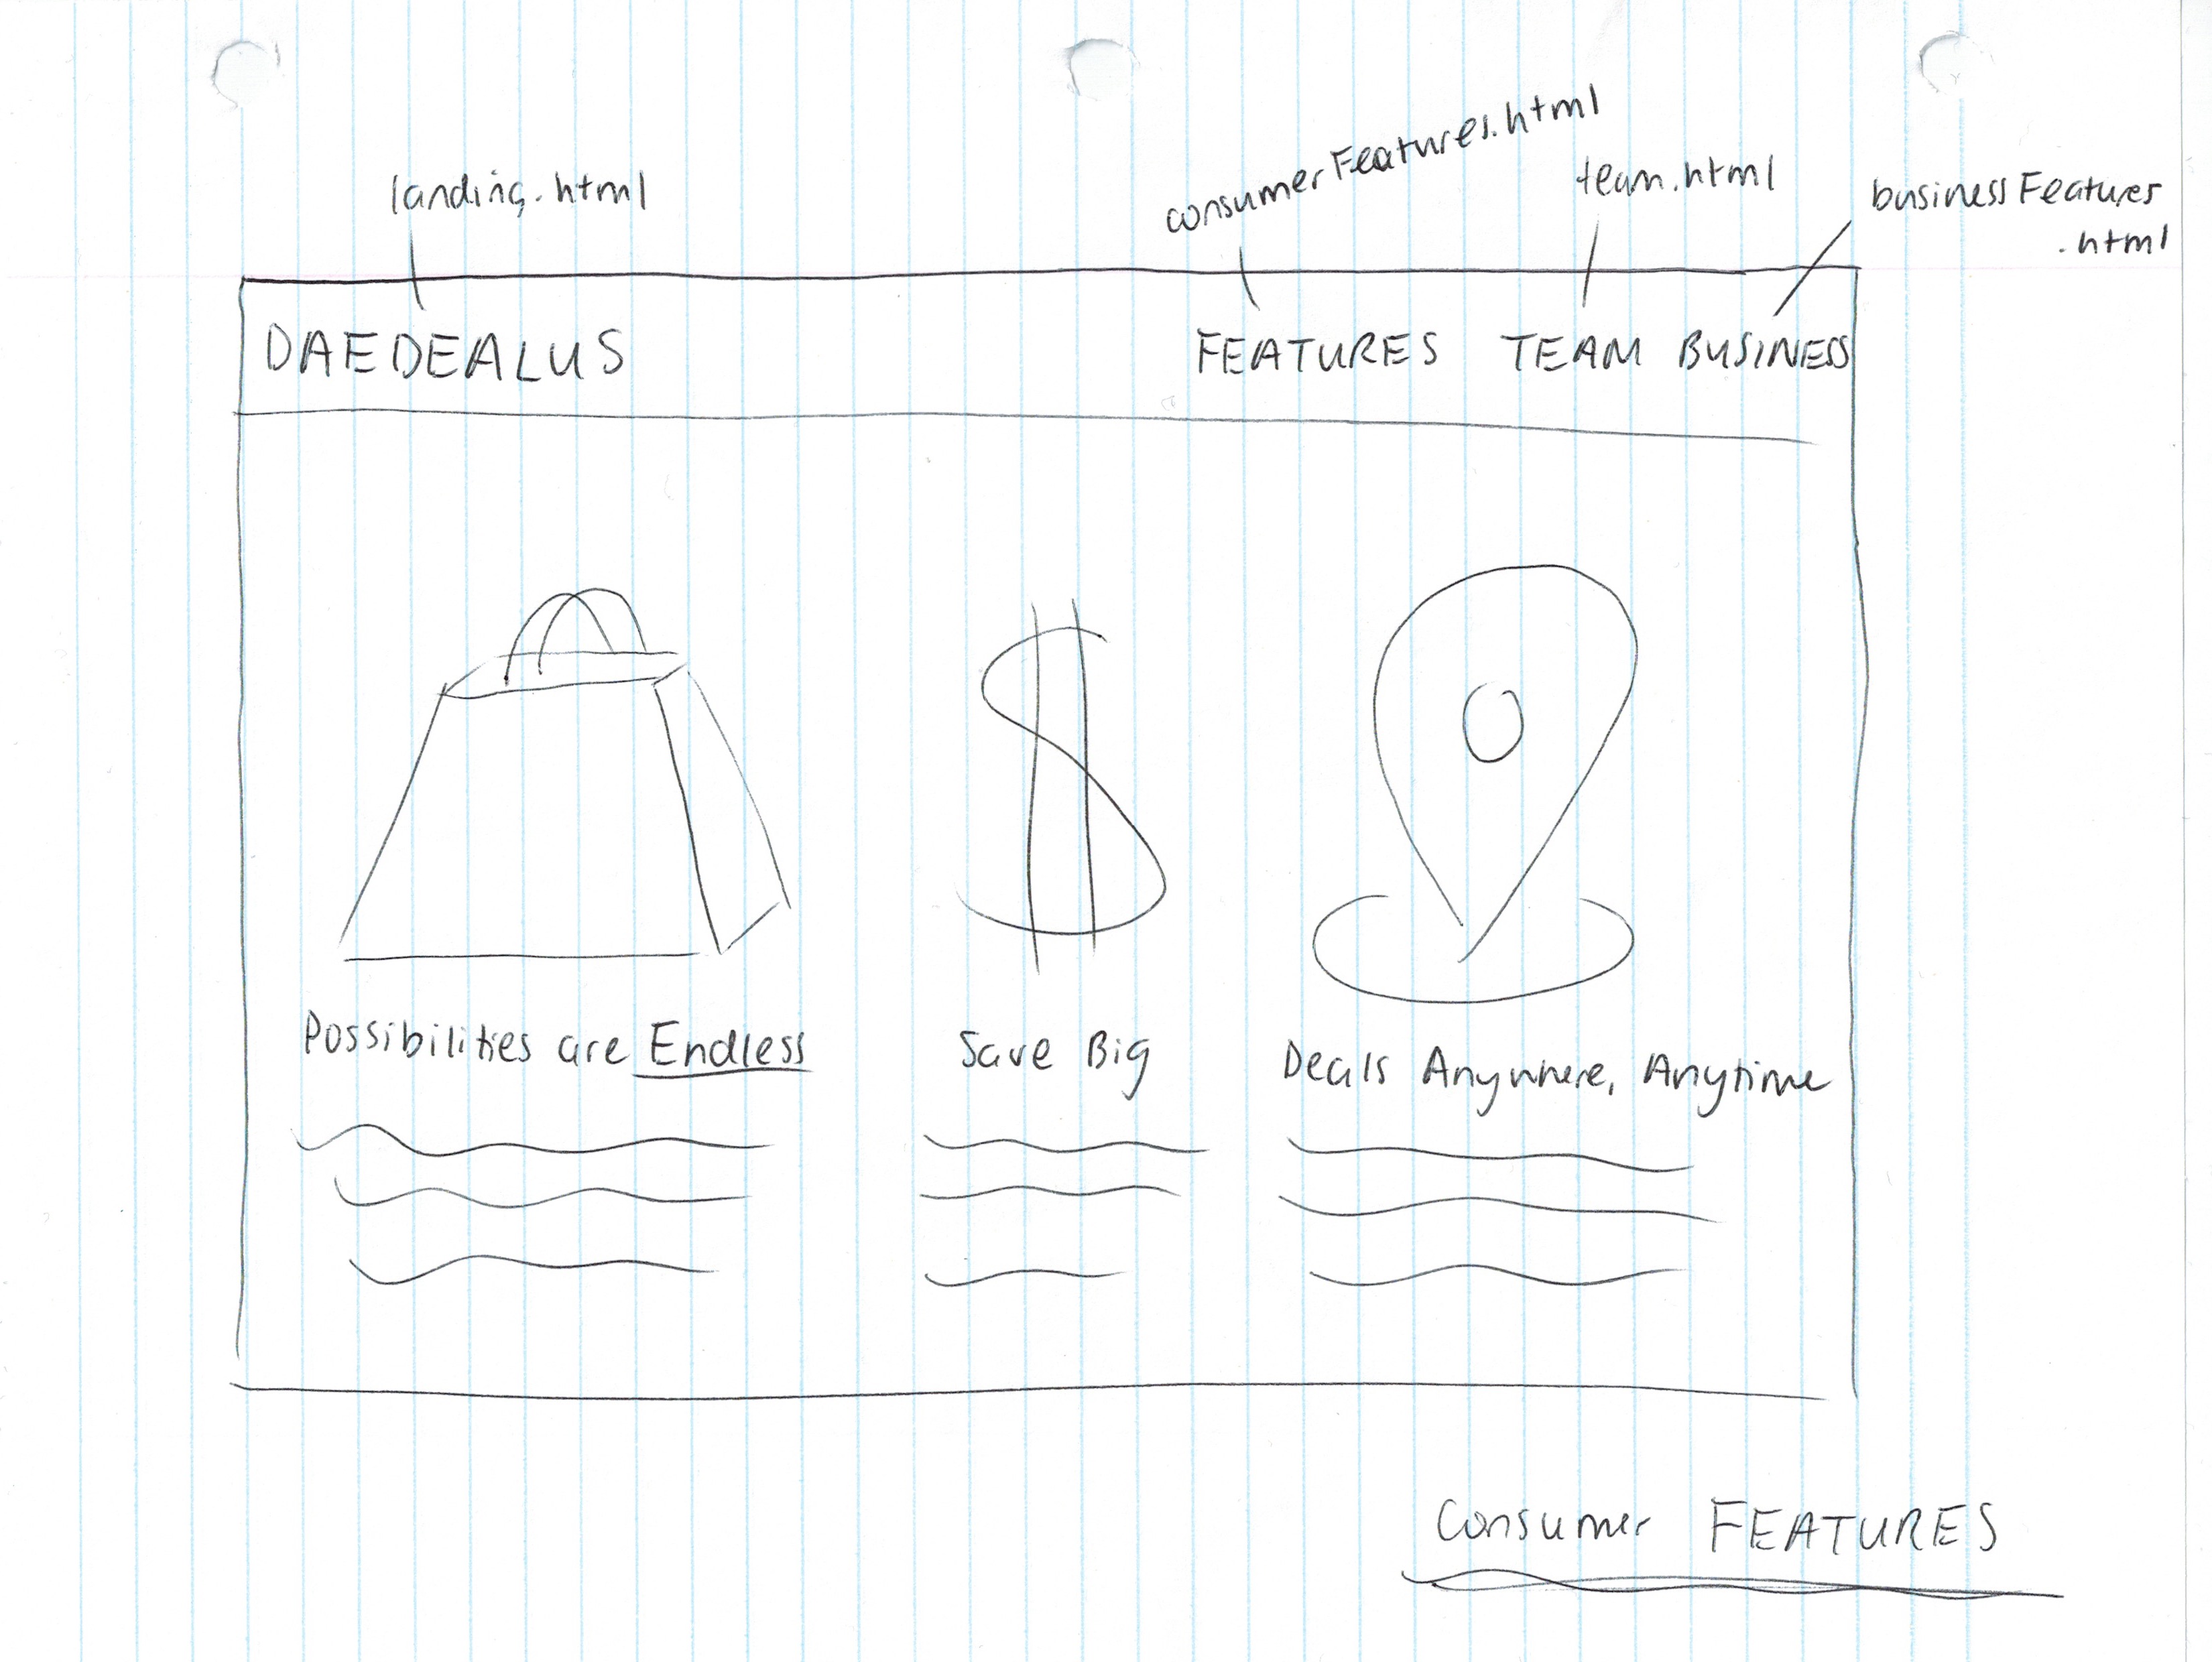 landing.html
consumerFeatures.html
team.html
businessFeatures
.html
DAEDEALUS
FEATURES TEAM BUSINESS
Possibilities are Endless
Save Big
Deals Anywhere, Anytime
Consumer FEATURES